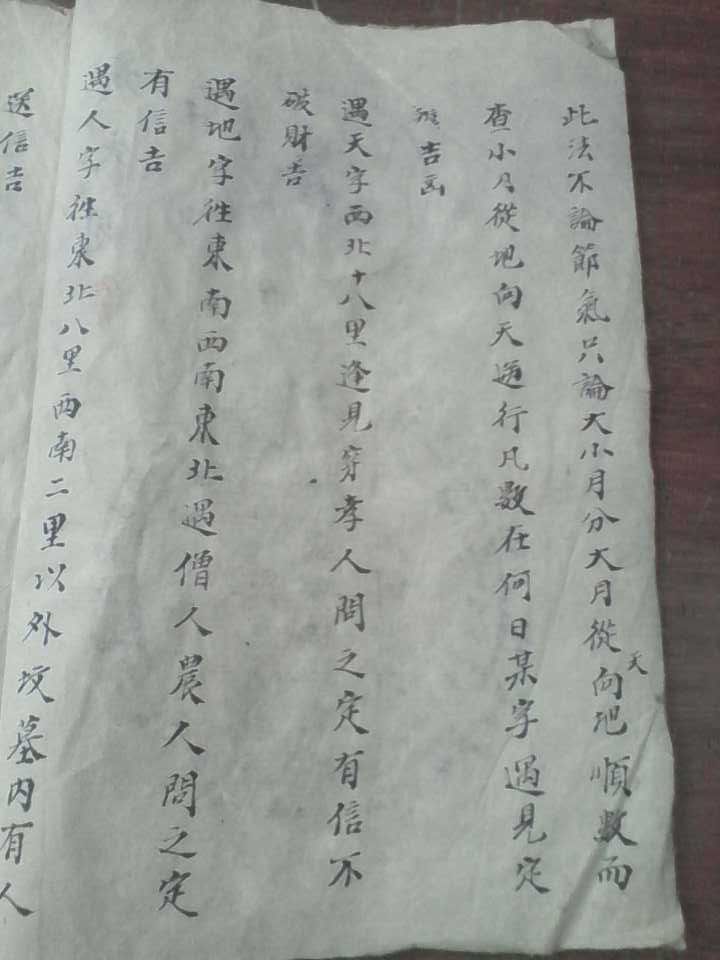 此法不論節氣只論大小月分大月從天向地順數而
查小月從地向天逆行凡數在何日某字遇見定
吉凶
遇天字西北十八里逢見穿孝人問之定有信不
破財吉
遇地字徃東南西南東北遇僧人農人問之定
有信吉
遇人字徃東北八里西南二里以外坟墓内有人
送信吉